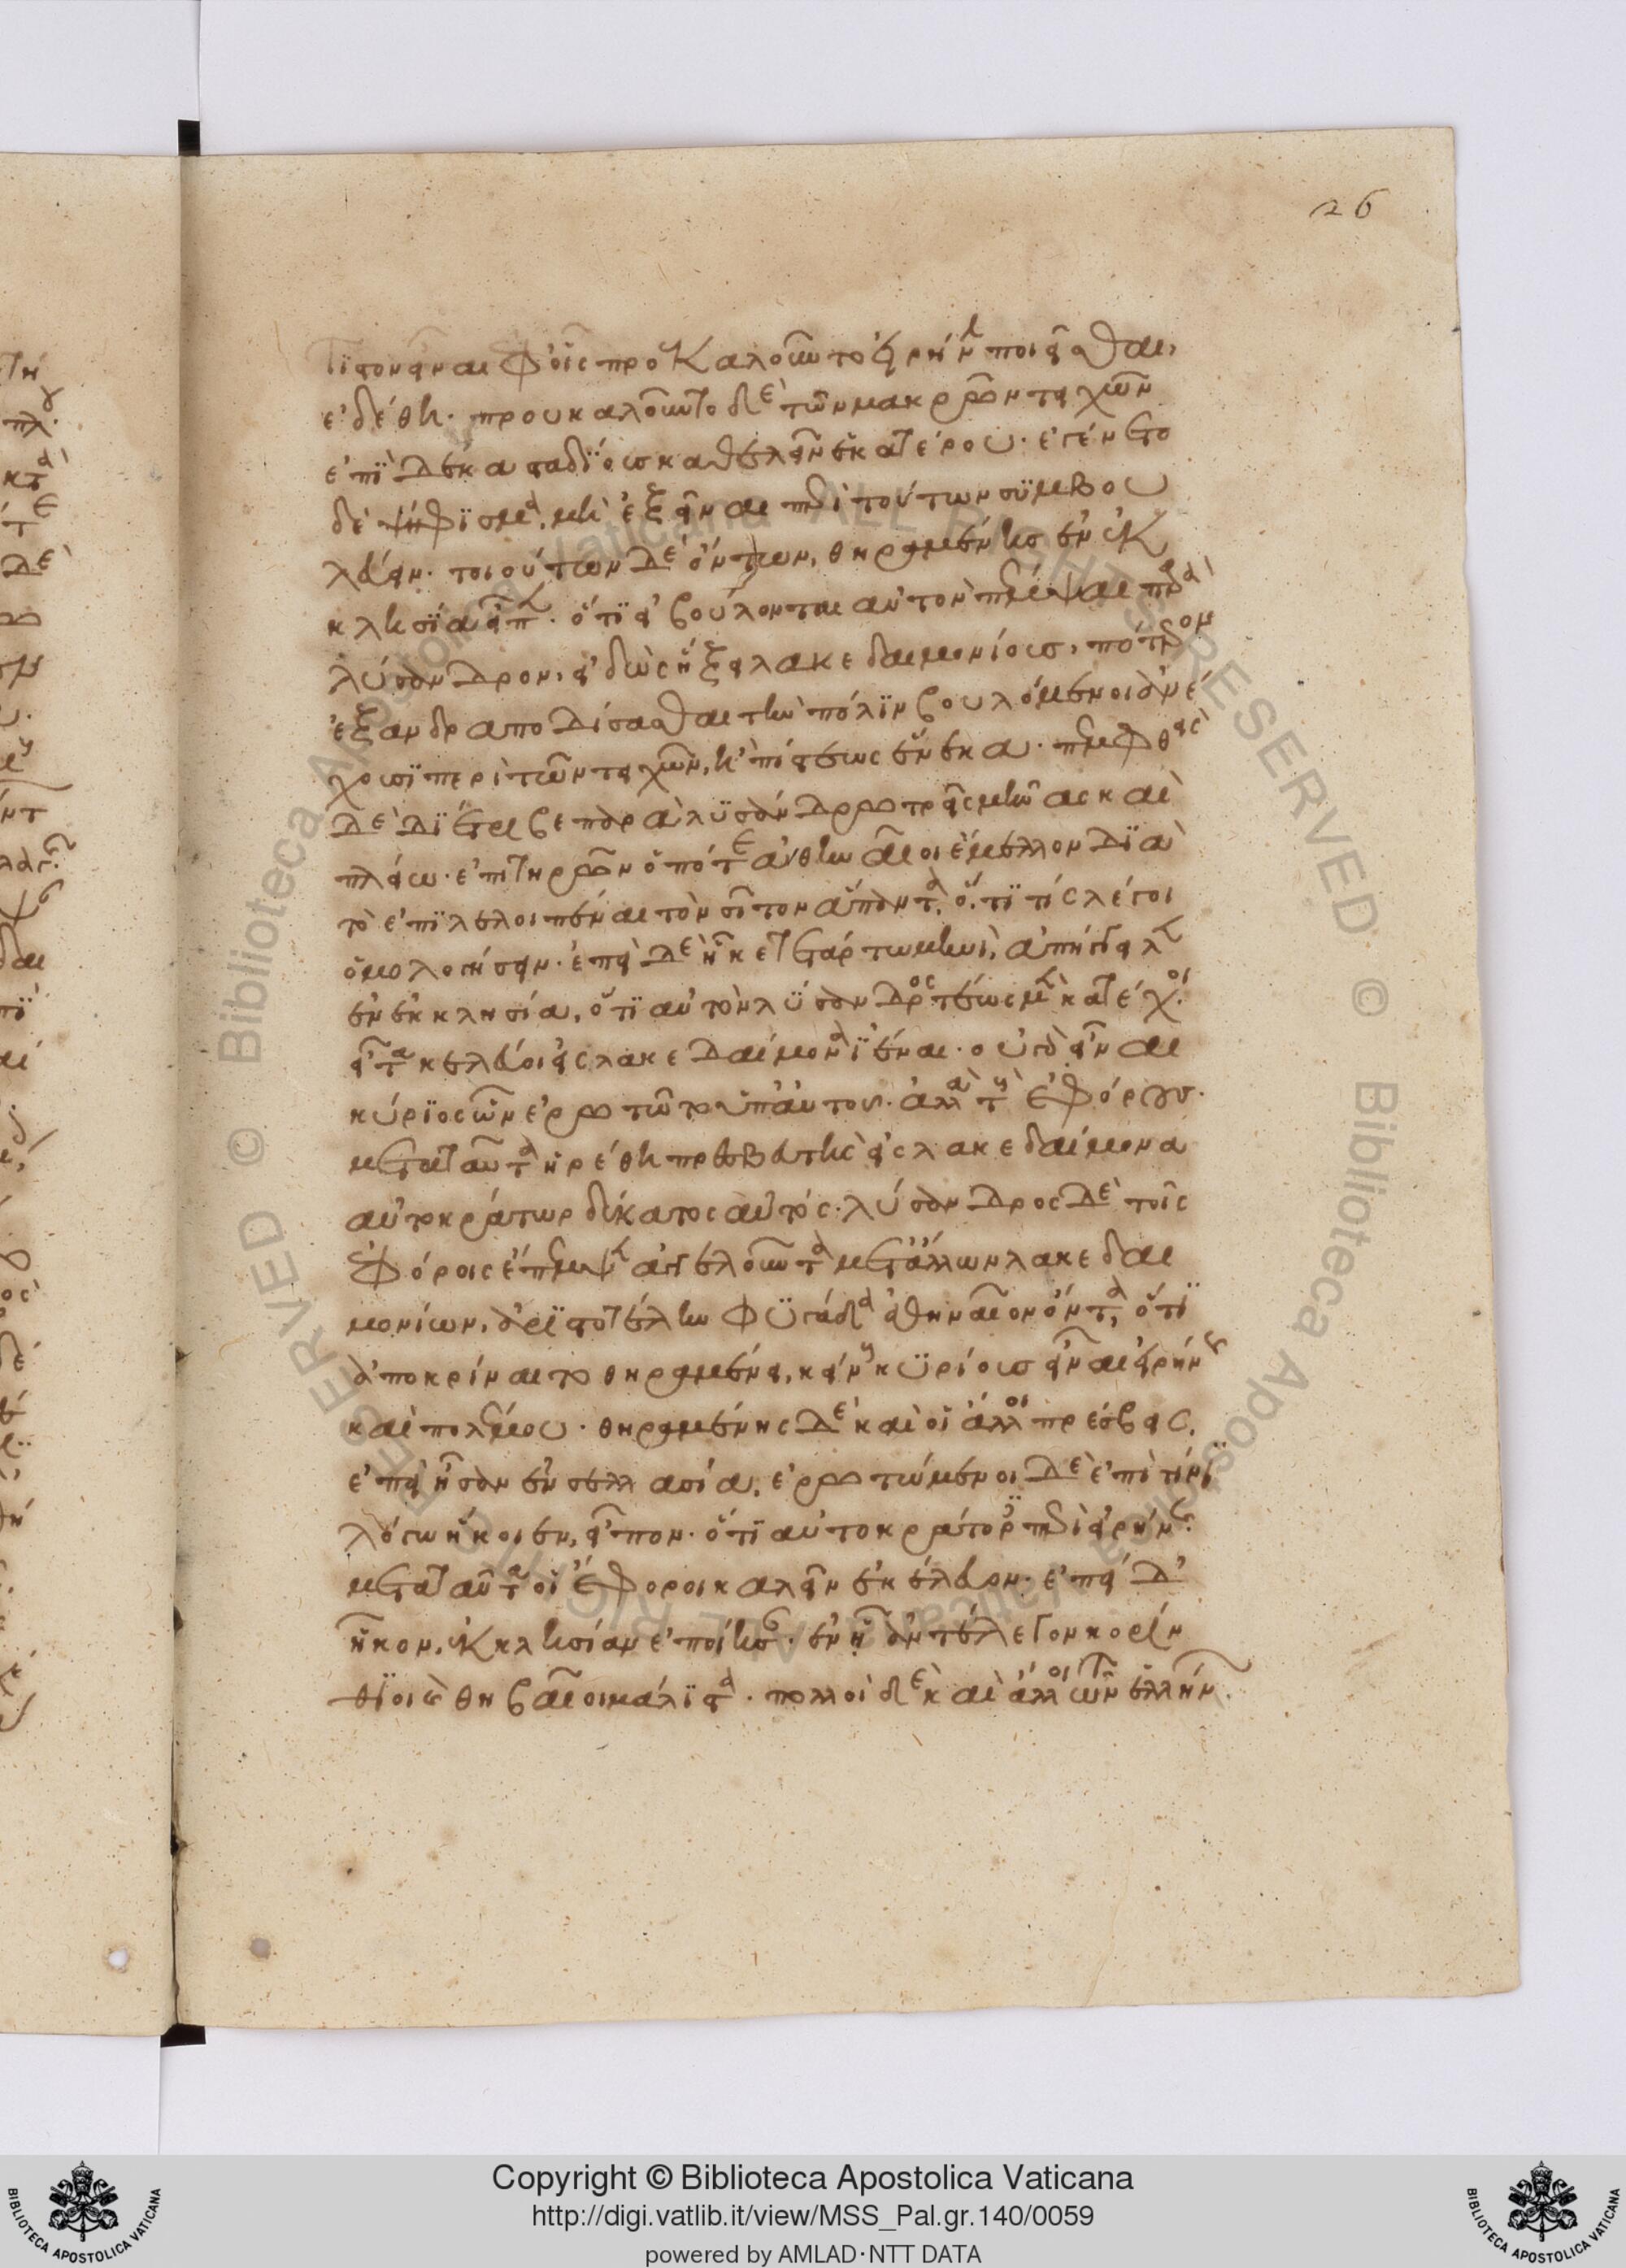 26
τιστον εἶναι ἐφ' οἷς προυκαλοῦντο εἰρήνην ποιεῖσθαι,
ἐδέθη. προυκαλοῦντο δὲ τῶν μακρῶν τειχῶν
ἐπὶ δέκα σταδίους καθελεῖν ἑκατέρου. ἐγένετο
δὲ ψήφισμα, μὴ ἐξεῖναι περὶ τούτων συμβου
λεύειν. τοιούτων δὲ ὄντων, θηραμένης ἐν ἐκ
κλησία εἶπεν. ὅτι εἰ βούλονται αὐτὸν πέμψαι παρὰ
λύσανδρον, εἰδὼς ἥξει λακεδαιμονίους, πότερον
ἐξανδραποδίσασθαι τὴν πόλιν βουλόμενοι ἀντέ
χουσι περὶ τῶν τειχῶν, ἢ πίστεως ἕνεκα. πεμφθεὶς
δὲ διέτριβε παρὰ λυσάνδρω τρεῖς μῆνας καὶ
πλείω. ἐπιτηρῶν ὁπότε ἀθηναῖοι ἔμελλον διὰ
τὸ ἐπιλελοιπέναι τὸν σῖτον ἅπαντα, ὅ,τι τίς λέγοι
ὁμολογήσειν. ἐπεὶ δὲ ἧκε τετάρτω μηνὶ, ἀπήγγειλεν
ἐν ἐκκλησία, ὅτι αὐτὸν λύσανδρος τέως μὲν κατέχοι.
εἶτα κελεύοι εἰς λακεδαίμονα ἰέναι. οὐ γὰρ εἶναι
κύριος ὧν ἐρωτῶτο ὑπ' αὐτοῦ. ἀλλὰ τοὺς ἐφόρους.
μετὰ ταῦτα ἡρέθη πρεσβευτὴς εἰς λακεδαίμονα
αὐτοκράτωρ δέκατος αὐτός. λύσανδρος δὲ τοῖς
ἐφόροις ἔπεμψεν ἀγγελοῦντα μετ' ἄλλων λακεδαι
μονίων, ἀριστοτέλην φυγάδα ἀθηναῖον ὄντα, ὅτι
ἀποκρίναιτο θηραμένει, κείνους κυρίους εἶναι εἰρήνης
καὶ πολέμου. θηραμένης δὲ καὶ οἱ ἄλλοι πρέσβεις,
ἐπεὶ ἦσαν ἐν σελλασία, ἐρωτώμενοι δὲ ἐπὶ τίνι
λόγω ἥκοιεν, εἶπον. ὅτι αὐτοκράτορες περὶ εἰρήνης.
μετὰ ταῦτα οἱ ἔφοροι καλεῖν ἐκέλευον. ἐπεὶ δ'
ἧκον, ἐκκλησίαν ἐποίησαν. ἐν ἧ ἀντέλεγον κορίν
θιοι καὶ θηβαῖοι μάλιστα. πολλοὶ δὲ καὶ ἄλλοι τῶν ἑλλήνων.
Copyright © Biblioteca Apostolica Vaticana
http://digi.vatlib.it/view/MSS_Pal.gr.140/0059
powered by AMLAD·NTT DATA